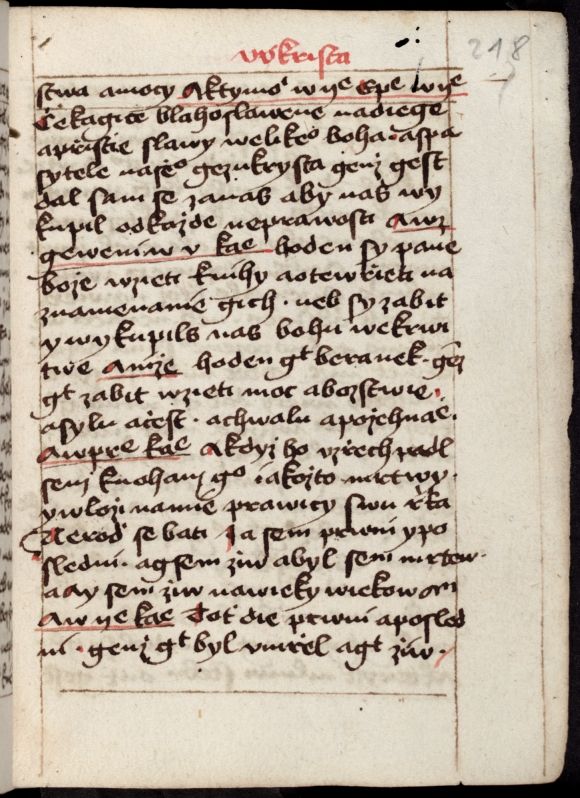 vvkrista
218
stwa amocy Aktymoͭ w iyͤ Epe wiyͤ
Čekagice blahoslawene nadiege
apřistie slawy welikeͦ boha aspa
sytele naseͦ gezukrysta genž gest
dal sam se zanas aby nas wy
kupil odkażde neprawosti Awz
geweni w v kaᵉ hoden sy pane
boże wzieti knihy aotewřieti na
znamenanie gich · neb sy zabit
ywykupils nas bohu wekrwi
twe Aniże hoden gͭ beranek · gēz
gͭ zabit wzieti moc abozstwie
asylu ačest · achwalu apożehnaē ·
Awprē kaᵉ Akdyż ho vzřech padl
sem knoham gͦ · iakożto mrtwy ·
ywlożi namie prawicy swu řka
Nerodͥ se bati Ja sem prwni ypo
sledni · agsem żiw abyl sem mrtew ·
aay sem żiw nawieky wiekow am
Aw iyͤ kaᵉ Totͦ die prwni aposled
ni · genż gͭ byl vmřel agͭ żiw ·